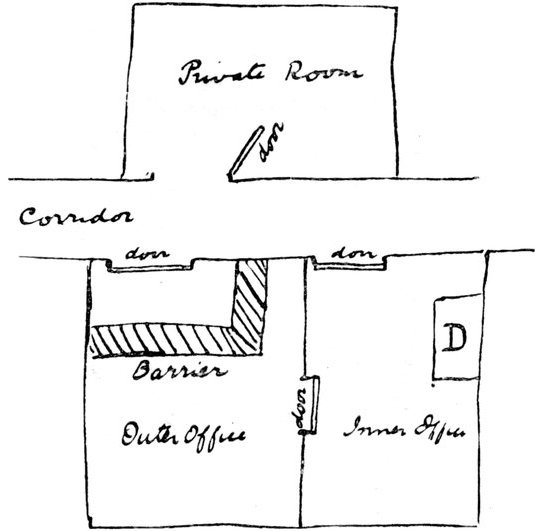 Private Room
door
Corridor
door
door
D
Barrier
door
Outer Office
Inner Office